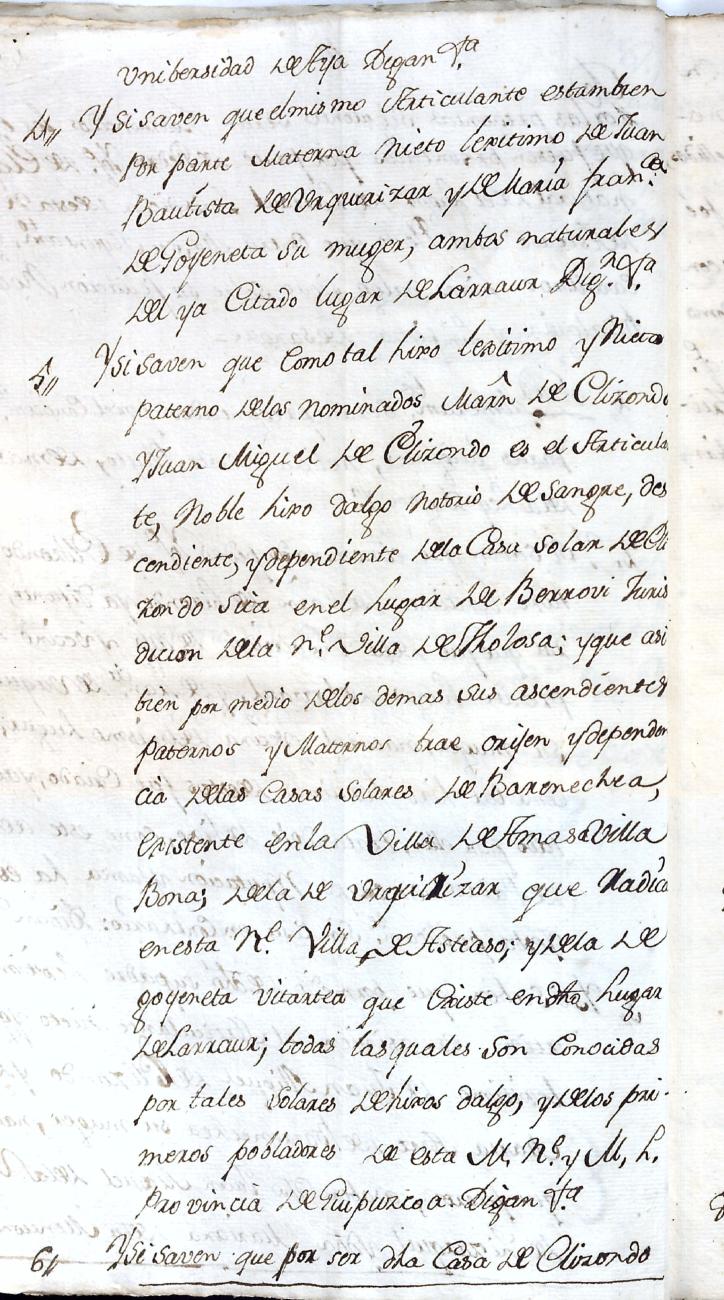 Unibersidad de Aya Digan &ta.
4,, Y si saven que el mismo Articulante estambien
por parte Materna Nieto lexitimo, de Juan
Bautista de Urquerizar y de Maria fran.ca
de Goyeneta su muger, ambos naturales
del ya Citado lugar de Larraur Dig.n &ta.
5,, Y si saven que como tal hixo lexitimo y Nieto
paterno delos nominados Marn̂ de Elizondo
Y Juan Miguel de Elizondo es el Articulan
te, Noble hixo dalgo notorio de sangre, des
cendiente, y dependiente dela Casa solar de Eli
zondo sita en el lugar de Berrovi Juris
dicion dela N.e Villa de Tholosa; y que asi
bien por medio delos demas sus ascendientes
paternos y Maternos trae orijen y dependen
cia delas Casas Solares de Barenechea,
existente en la Villa de Amasa Villa
Bona; dela de Urquizar que Radica
en esta N.e Villa de Asteaso; y dela de
goyeneta vitartea que Existe en dho lugar
de Larraur; todas las quales son conocidas
por tales solares de hixos dalgo, y delos pri-
meros pobladores de esta M. N.e y M, L.
Provincia de Guipuzcoa Digan &ta.
6,, Y si saven que por ser dha Casa de Elizondo